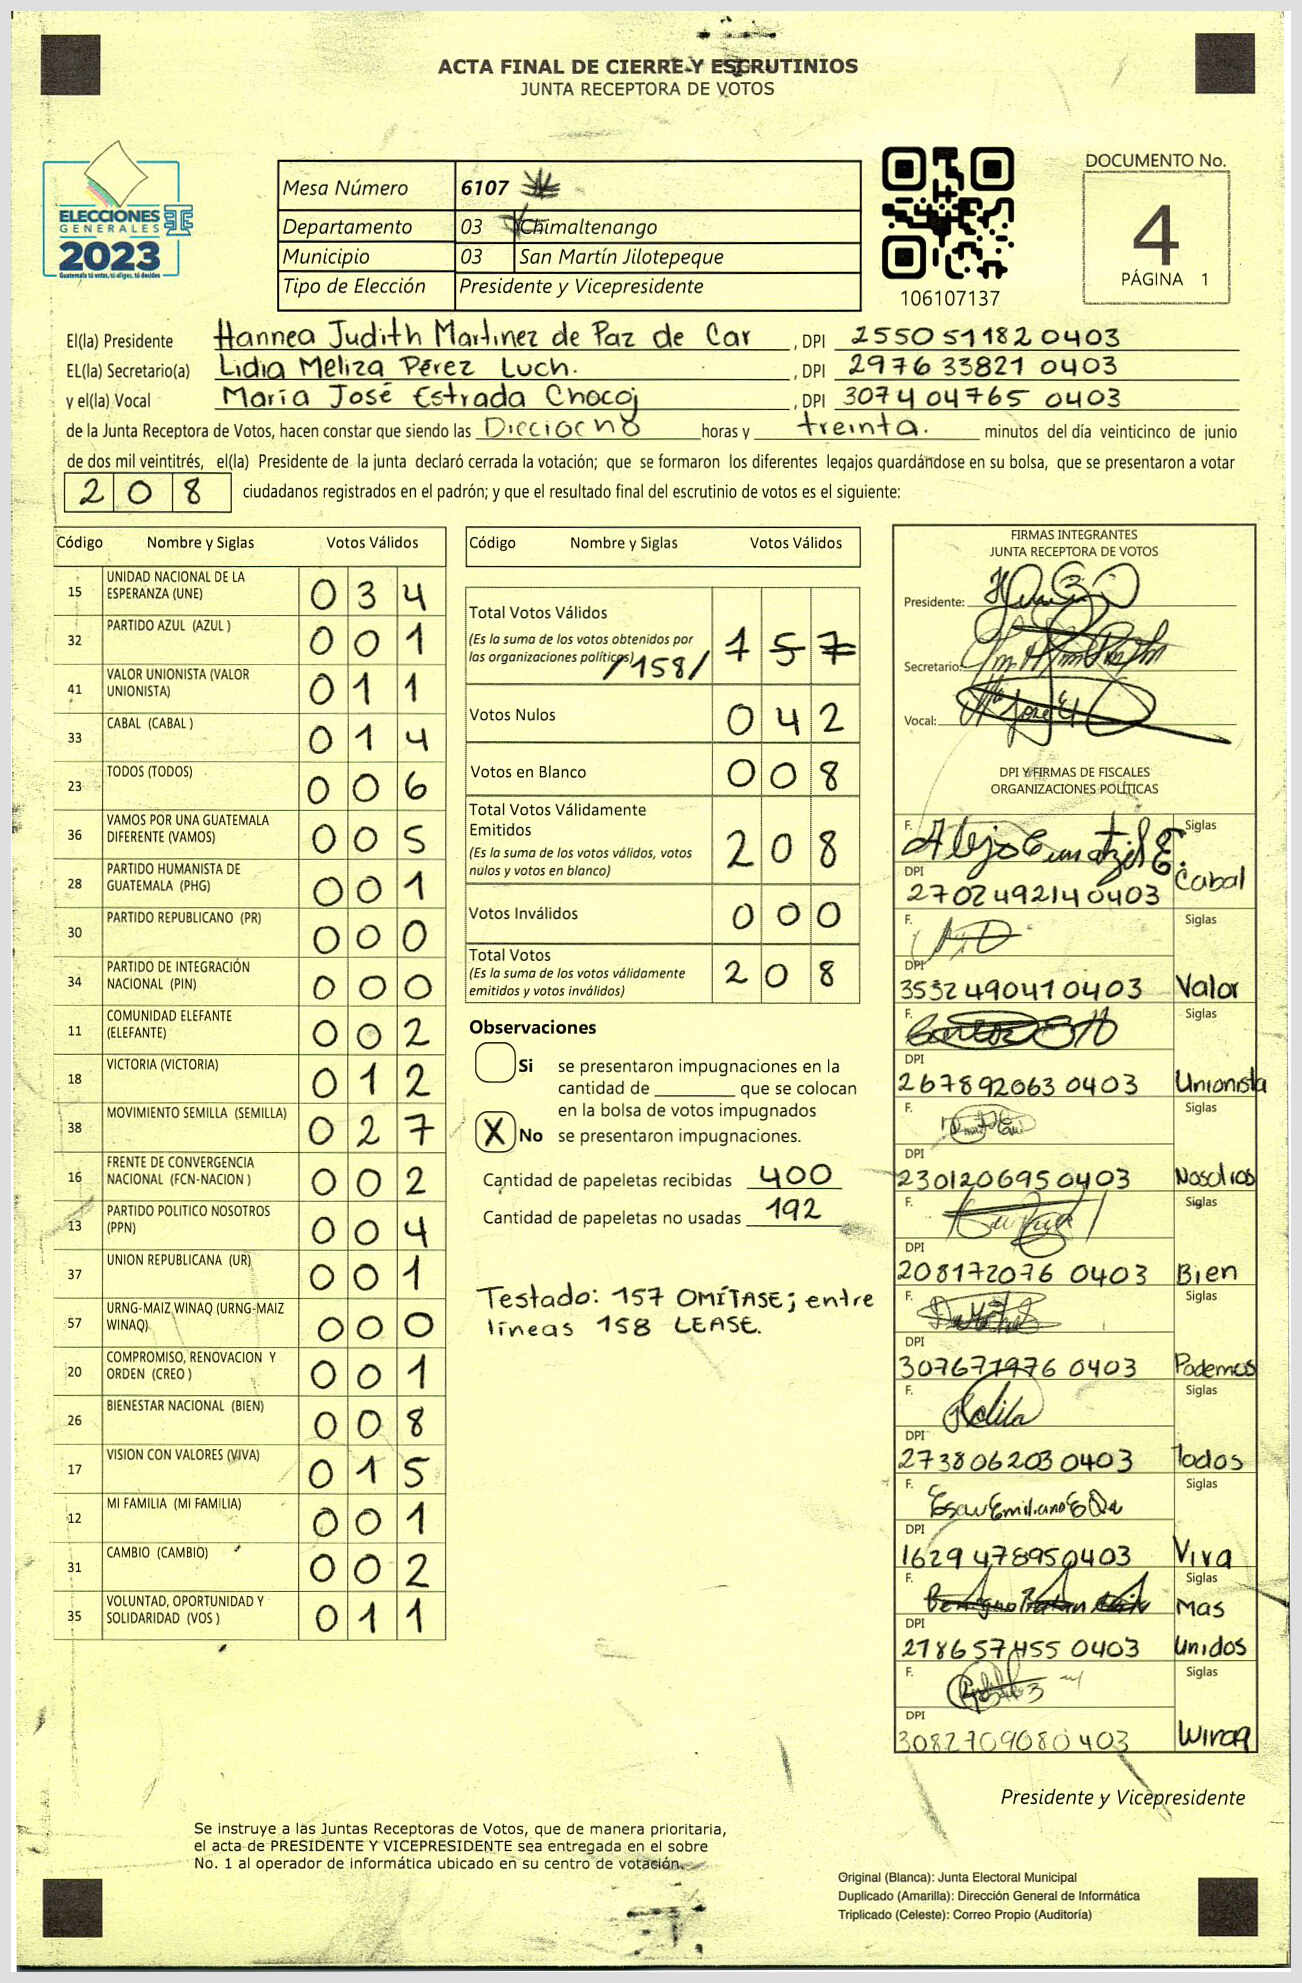 ACTA FINAL DE CIERRE Y ESCRUTINIOS
JUNTA RECEPTORA DE VOTOS
ELECCIONES
GENERALES
2023
Guatemala tú votas, tú eliges, tú decides
Mesa Número 6107
Departamento 03 Chimaltenango
Municipio 03 San Martín Jilotepeque
Tipo de Elección Presidente y Vicepresidente
106107137
DOCUMENTO No.
4
PÁGINA 1
El(la) Presidente Hannea Judith Martinez de Paz de Car , DPI 2550 51182 0403
EL(la) Secretario(a) Lidia Meliza Pérez Luch. , DPI 2976 33821 0403
y el(la) Vocal María José Estrada Chocoj , DPI 3074 04765 0403
de la Junta Receptora de Votos, hacen constar que siendo las Dieciocho horas y treinta. minutos del día veinticinco de junio
de dos mil veintitrés, el(la) Presidente de la junta declaró cerrada la votación; que se formaron los diferentes legajos guardándose en su bolsa, que se presentaron a votar
208 ciudadanos registrados en el padrón; y que el resultado final del escrutinio de votos es el siguiente:
Código Nombre y Siglas Votos Válidos
15 UNIDAD NACIONAL DE LA ESPERANZA (UNE) 034
32 PARTIDO AZUL (AZUL ) 001
41 VALOR UNIONISTA (VALOR UNIONISTA) 011
33 CABAL (CABAL ) 014
23 TODOS (TODOS) 006
36 VAMOS POR UNA GUATEMALA DIFERENTE (VAMOS) 005
28 PARTIDO HUMANISTA DE GUATEMALA (PHG) 001
30 PARTIDO REPUBLICANO (PR) 000
34 PARTIDO DE INTEGRACIÓN NACIONAL (PIN) 000
11 COMUNIDAD ELEFANTE (ELEFANTE) 002
18 VICTORIA (VICTORIA) 012
38 MOVIMIENTO SEMILLA (SEMILLA) 027
16 FRENTE DE CONVERGENCIA NACIONAL (FCN-NACION ) 002
13 PARTIDO POLITICO NOSOTROS (PPN) 004
37 UNION REPUBLICANA (UR) 001
57 URNG-MAIZ WINAQ (URNG-MAIZ WINAQ) 000
20 COMPROMISO, RENOVACION Y ORDEN (CREO ) 001
26 BIENESTAR NACIONAL (BIEN) 008
17 VISION CON VALORES (VIVA) 015
12 MI FAMILIA (MI FAMILIA) 001
31 CAMBIO (CAMBIO) 002
35 VOLUNTAD, OPORTUNIDAD Y SOLIDARIDAD (VOS ) 011
Código Nombre y Siglas Votos Válidos
Total Votos Válidos
(Es la suma de los votos obtenidos por
las organizaciones políticas) /158/ 157
Votos Nulos 042
Votos en Blanco 008
Total Votos Válidamente
Emitidos
(Es la suma de los votos válidos, votos
nulos y votos en blanco) 208
Votos Inválidos 000
Total Votos
(Es la suma de los votos válidamente
emitidos y votos inválidos) 208
Observaciones
Si se presentaron impugnaciones en la
cantidad de ________ que se colocan
en la bolsa de votos impugnados
X No se presentaron impugnaciones.
Cantidad de papeletas recibidas 400
Cantidad de papeletas no usadas 192
Testado: 157 OMÍTASE; entre
líneas 158 LEASE.
FIRMAS INTEGRANTES
JUNTA RECEPTORA DE VOTOS
Presidente:
Secretario:
Vocal:
DPI Y FIRMAS DE FISCALES
ORGANIZACIONES POLÍTICAS
F. Siglas
DPI
2702492140403 Cabal
F. Siglas
DPI
3532490410403 Valor
F. Siglas
DPI
267892063 0403 Unionista
F. Siglas
DPI
2301206950403 Nosotros
F. Siglas
DPI
208172076 0403 Bien
F. Siglas
DPI
307671976 0403 Podemos
F. Siglas
DPI
2738062030403 Todos
F. Siglas
DPI
1629478950403 Viva
F. Siglas
Mas
DPI
218657455 0403 Unidos
F. Siglas
DPI
3082709080403 Winaq
Presidente y Vicepresidente
Se instruye a las Juntas Receptoras de Votos, que de manera prioritaria,
el acta de PRESIDENTE Y VICEPRESIDENTE sea entregada en el sobre
No. 1 al operador de informática ubicado en su centro de votación.
Original (Blanca): Junta Electoral Municipal
Duplicado (Amarilla): Dirección General de Informática
Triplicado (Celeste): Correo Propio (Auditoría)